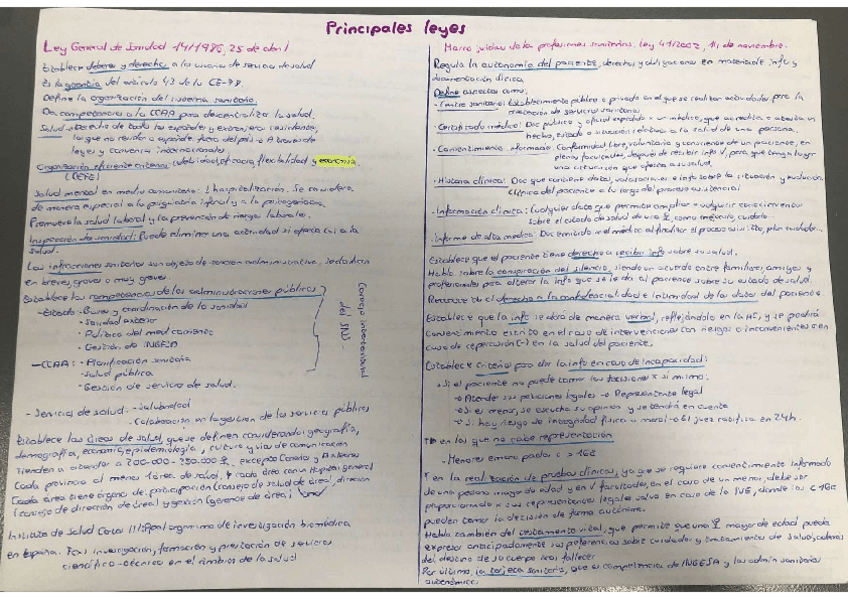 Principales leyes
Ley General de Sanidad 14/1986, 25 de abril
Establece deberes y derechos a los usuarios de servicio de salud
Es la garantía del artículo 43 de la CE-78.
Define la organización del sistema sanitario.
Da competencias a la CCAA para descentralizar la salud.
Salud → Derecho de todos los españoles y extranjeros residentes,
los que no residan o españoles fuera del país → A través de
leyes y convenios internacionales
Organización eficiente criterios: celeridad, eficacia, flexibilidad y economía
(CEFE)
Salud mental en medio comunitario: ↓ hospitalización. Se considera
de manera especial a la psiquiatría infantil y a la psicogeriatría.
Promueve la salud laboral y la prevención de riesgos laborales.
Inspección de sanidad: Puede eliminar una actividad si afecta a la
salud.
Las infracciones sanitarias son objeto de sanción administrativa, se clasifican
en breves, graves o muy graves.
Establece las competencias de las administraciones públicas
- Estado: - Bases y coordinación de la sanidad
- Sanidad exterior
- Política del medicamento
- Gestión de INGESA
- CCAA: - Planificación sanitaria
- Salud pública
- Gestión de servicio de salud.
Consejo interterritorial
del SNS.
- Servicio de salud: - Salubridad
- Colaboración en la gestión de los servicios públicos
Establece las áreas de salud, que se definen considerando: geografía,
demografía, economía, epidemiología, cultura y vías de comunicación
Tienden a atender a 200.000 - 250.000, excepto Canarias y Baleares
Cada provincia al menos 1 área de salud, y cada área con un Hospital general
Cada área tiene órganos de: participación (consejo de salud de área), dirección
(consejo de dirección de área) y gestión (gerencia de área)
Instituto de Salud Carlos III: Real organismo de investigación biomédica
en España. Fx: investigación, formación y prestación de servicios
científico-técnico en el ámbito de la salud
Marco jurídico de las profesiones sanitarias. Ley 41/2002, 14 de noviembre.
Regula la autonomía del paciente, derechos y obligaciones en materia de info y
documentación clínica.
Define aspectos como:
- Centro sanitario: Establecimiento público o privado en el que se realizan actividades para la
prestación de servicios sanitarios.
- Certificado médico: Doc público y oficial expedido x un médico, que acredita o
hecho, estado o situación relativa a la salud de una persona.
- Consentimiento informado: Conformidad libre, voluntaria y consciente de un paciente, en
plenas facultades, después de recibir info V, para que tenga lugar
una actuación que afecta a su salud.
- Historia clínica: Doc que contiene datos, valoraciones e info sobre la situación y evolución
clínica del paciente a lo largo del proceso asistencial
- Información clínica: Cualquier dato que permite ampliar o adquirir conocimientos
sobre el estado de salud de una, como mejorarlo, cuidarlo.
- Informe de alta médica: Doc emitido x el médico al finalizar el proceso
Establece que el paciente tiene derecho a recibir info sobre su salud.
Habla sobre la conspiración del silencio, siendo un acuerdo entre familiares, amigos y
profesionales para alterar la info que se le da al paciente sobre su estado de salud.
el derecho a la confidencialidad e intimidad de los datos del paciente
Establece que la info se dará de manera verbal, reflejándolo en la HC, y se pedirá
consentimiento escrito en el caso de intervenciones con riesgos o inconvenientes o en
caso de repercusión (-) en la salud del paciente.
Establece criterios para dar la info en caso de incapacidad:
• Si el paciente no puede tomar las decisiones x sí mismo:
→ Atiende sus peticiones legales → Representante legal
→ Si es menor, se escucha su opinión y se tendrá en cuenta
→ Si hay riesgo de integridad física o moral → El juez ratifica en 24h.
en los que no cabe representación
- Menores emancipados o > 16 a
en la realización de pruebas clínicas, ya que se requiere consentimiento informado
de una persona mayor de edad y en V facultades, en el caso de un menor, debe ser
proporcionado x sus representantes legales salvo en caso de la IVE, donde los
pueden tomar la decisión de forma autónoma.
Habla también del testamento vital, que permite que una mayor de edad pueda
expresar anticipadamente sus preferencias sobre cuidados y tratamientos de salud,
del destino de su cuerpo tras fallecer
Por último, la tarjeta sanitaria, que es competencia de INGESA y las admin sanitarias
autonómicas.